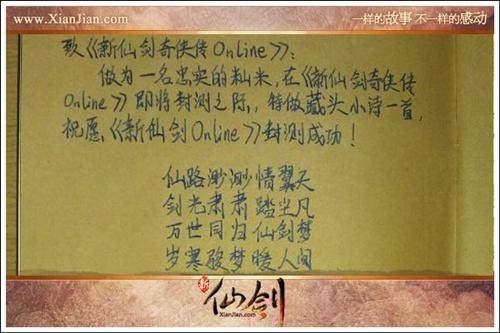 www.XianJian.com
一样的故事 不一样的感动
致《新仙剑奇侠传Online》:
做为一名忠实的籼米,在《新仙剑奇侠传
Online》即将封测之际,特做藏头小诗一首,
祝愿《新仙剑Online》封测成功!
仙路渺渺情翼天
剑光肃肃踏尘凡
万世同归仙剑梦
岁寒酸梦暖人间
新
仙剑
XianJian.com